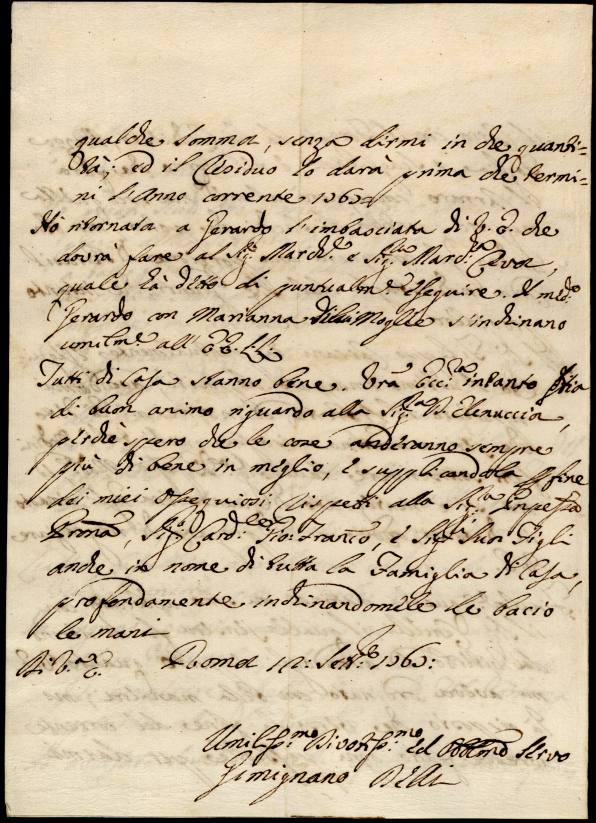 qualche somma, senza dirmi in che quanti=
tà; ed il residuo lo darà prima che termi=
ni l'Anno corrente 1760
Hò ritornata a Gerardo l'imbasciata di V. E. che
dovrà fare al Sig.r March.e e Sig.ra March.a
quale hà detto di puntualm.e eseguire. Il med.o
Gerardo con Marianna Moglie s'inchinano
umilm.e all' EE. LL.
Tutti di Casa stanno bene. Vrã Ecc.za intanto stia
di buon animo riguardo alla Sig.ra D. Elenuccia,
perchè spero che le cose anderanno sempre
più di bene in meglio, e supplicandola in fine
dei miei Ossequiosi rispetti alla Sig.ra Pnpessa
Pronã, Sig.r Card.le Gio: Franco, e Sig.ri Suoi Figli
anche in nome di tutta la Famiglia di Casa,
profondamente inchinandomele le bacio
le mani
Di V. E. Roma 12: Sett.e 1760:
Umiliss.mo Divotiss.mo ed Obblmo Servo
Gimignano Belli